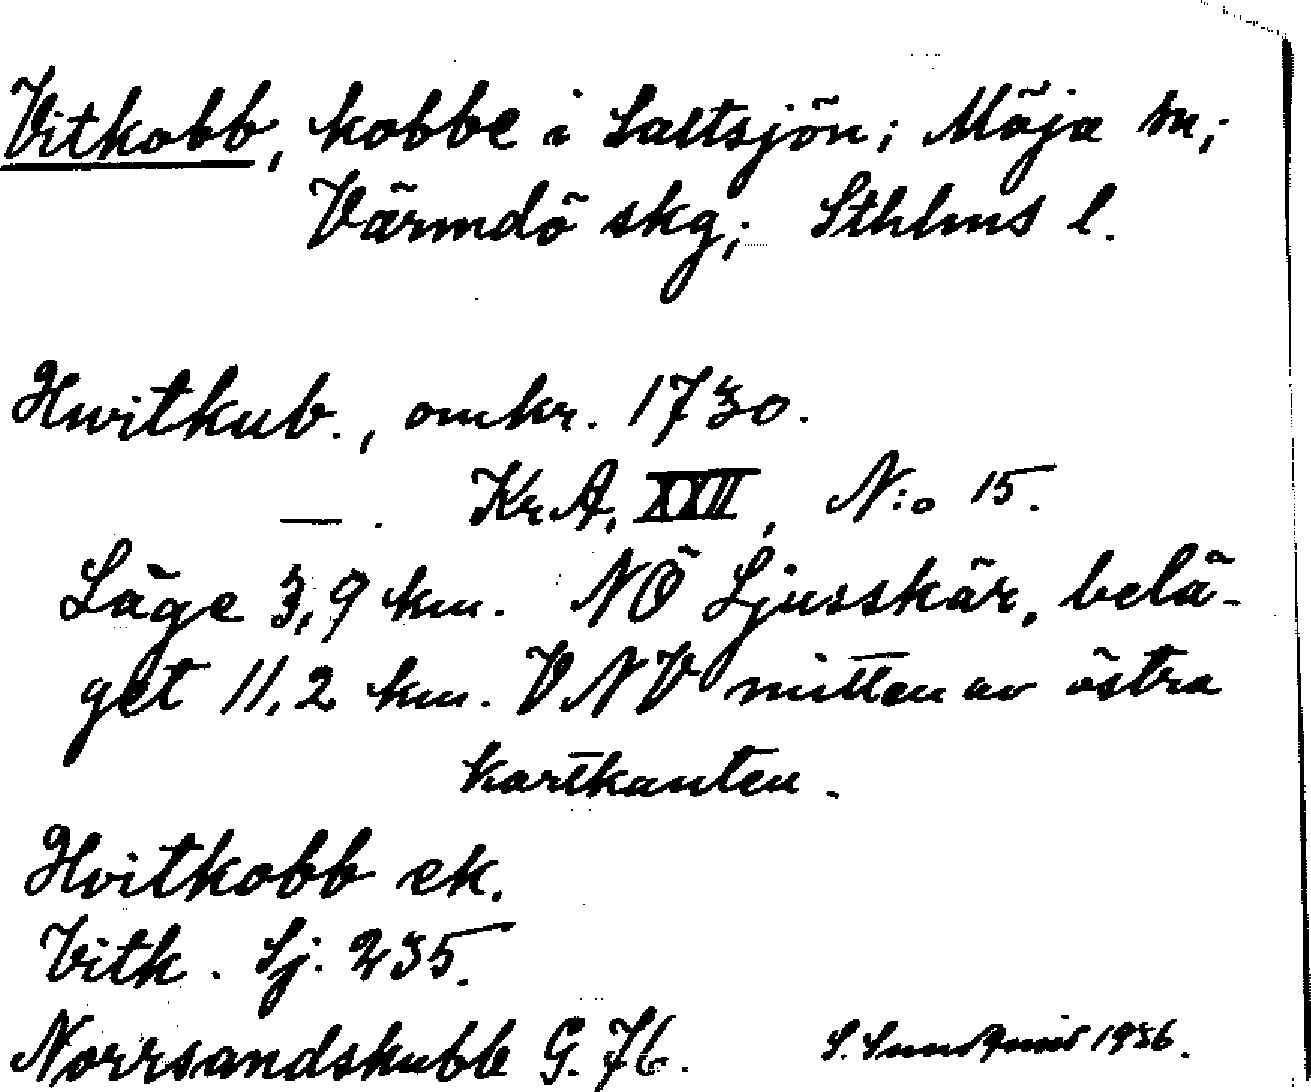 Vitkobb, kobbe i Saltsjön; Möja sn;
Värmdö skg; Sthlms l.
Hwitkub., omkr. 1730.
—. KrA, XXII, N:o 15.
Läge 3,9 km. NÖ Ljusskär, belä-
get 11,2 km. VNV mitten av östra
kartkanten.
Hvitkobb ek.
Vitk. Sj. 235.
Norrsandskubb G. 76. S. Sundquist 1936.